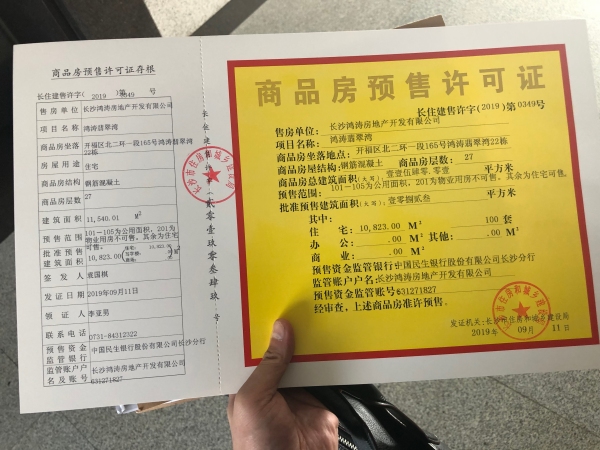 商品房预售许可证存根
长住建售许字( 2019 )第0349 号
售房单位 长沙鸿涛房地产开发有限公司
项目名称 鸿涛翡翠湾
商品房坐落 开福区北二环一段165号鸿涛翡翠湾22栋
房屋用途 住宅
商品房结构 钢筋混凝土
商品房层数 27
建筑面积 11,540.01 M²
预售范围 101-105为公用面积, 201为物业用房不可售, 其余为住宅可售。
批准预售建筑面积 10,823.00 M² 住宅: 10,823.00 M²
签发人 袁国棋
发证日期 2019年09月11日
领证人 李亚男
联系电话 0731-84312322
预售资金监管银行 中国民生银行股份有限公司长沙分行
监管账户户名及账号 长沙鸿涛房地产开发有限公司
631271827
长住建售许字(贰零壹玖零叁肆玖号
长沙市住房和城乡建设局
商品房预售许可证
长住建售许字(2019)第 0349号
售房单位: 长沙鸿涛房地产开发有限公司
项目名称: 鸿涛翡翠湾
商品房坐落地点: 开福区北二环一段165号鸿涛翡翠湾22栋
商品房结构: 钢筋混凝土 商品房层数: 27
商品房总建筑面积(大写): 壹壹伍肆零.零壹 平方米
预售范围: 101-105为公用面积, 201为物业用房不可售, 其余为住宅可售。
批准预售建筑面积(大写): 壹零捌贰叁 平方米
其中:
住 宅: 10,823.00 M² 100 套
办 公: .00 M² 其他: .00 M²
商 业: .00 M²
预售资金监管银行 中国民生银行股份有限公司长沙分行
监管账户户名: 长沙鸿涛房地产开发有限公司
预售资金监管账号 631271827
经审查, 上述商品房准许预售。
发证机关: 长沙市住房和城乡建设局
2019年 09月 11日
长沙市住房和城乡建设局